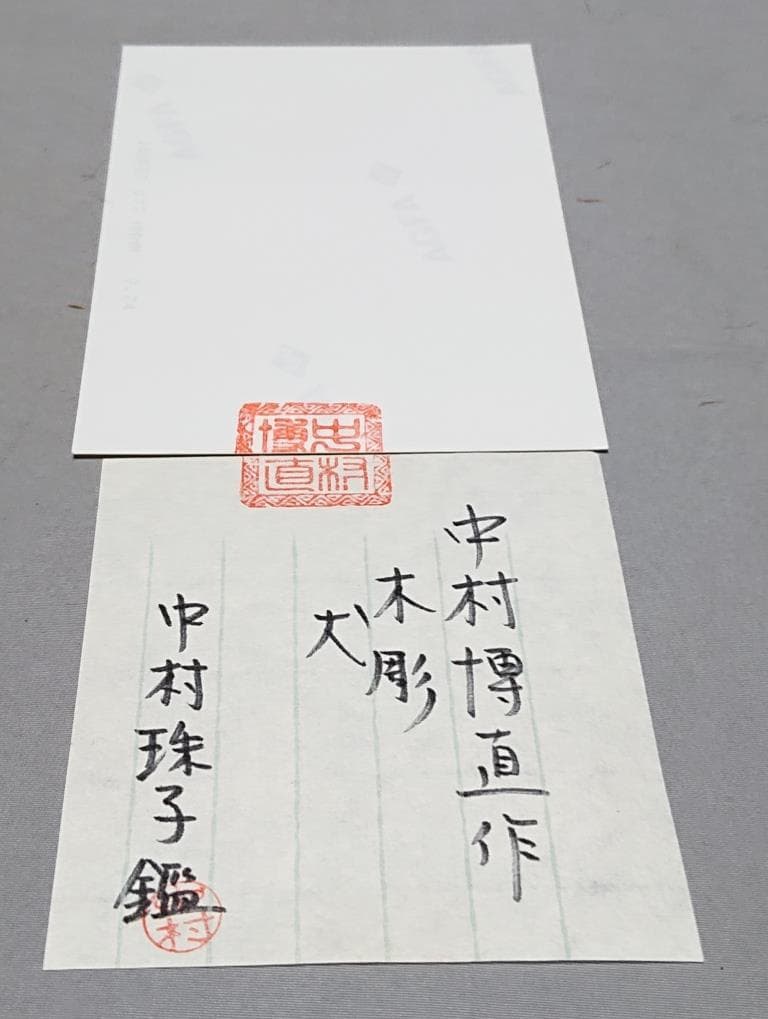 中村博直作
木彫
犬
中村珠子鑑
中村
博直
AGFA